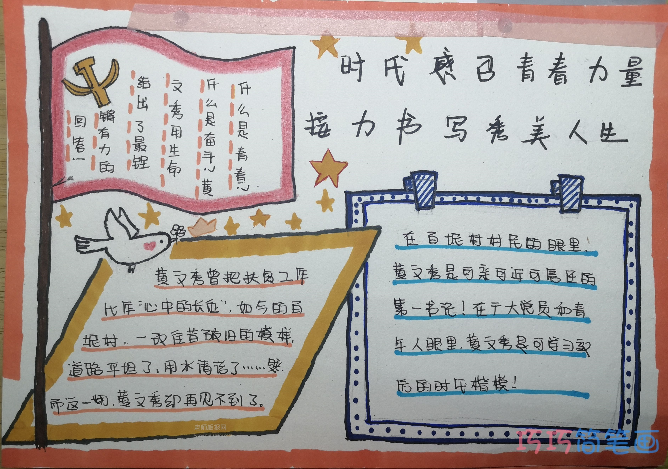 时代感召青春力量
接力书写秀美人生
什么是青春？
什么是奋斗？黄
文秀用生命
给出了最铿
锵有力的
回答！
黄文秀曾把扶贫工作
比作“心中的长征”，如今的百
坭村，一改往昔破旧的模样，
道路平坦了，用水清洁了……然
而这一切，黄文秀却再见不到了。
在百坭村村民的眼里，
黄文秀是可亲可近可信任的
第一书记！在广大党员和青
年人眼里，黄文秀是可学习致
用的时代楷模！
巧巧简笔画